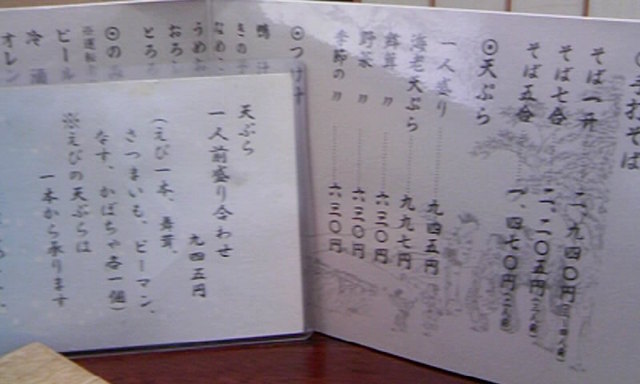 ◎手打そば
そば一升 二、九四〇円
そば七合 二、二〇五円
そば五合 一、四七〇円
◎天ぷら
一人盛り 九四五円
海老天ぷら 九九七円
舞茸 〃 六三〇円
野菜 〃 六三〇円
季節の 〃 六三〇円
◎つけ汁
鴨汁
きのこ
なめこ
うめお
おろし
とろろ
◎のみ
※運転
ビール
冷酒
オレン
天ぷら
一人前盛り合わせ
九四五円
(えび一本、舞茸、
さつまいも、ピーマン、
なす、かぼちゃ各一個)
※えびの天ぷらは
一本から承ります